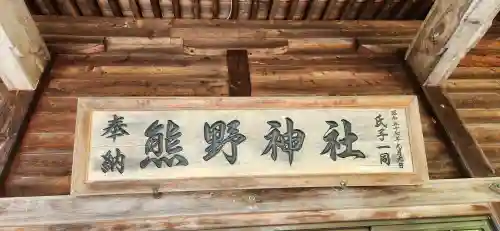 奉納
熊野神社
氏子一同